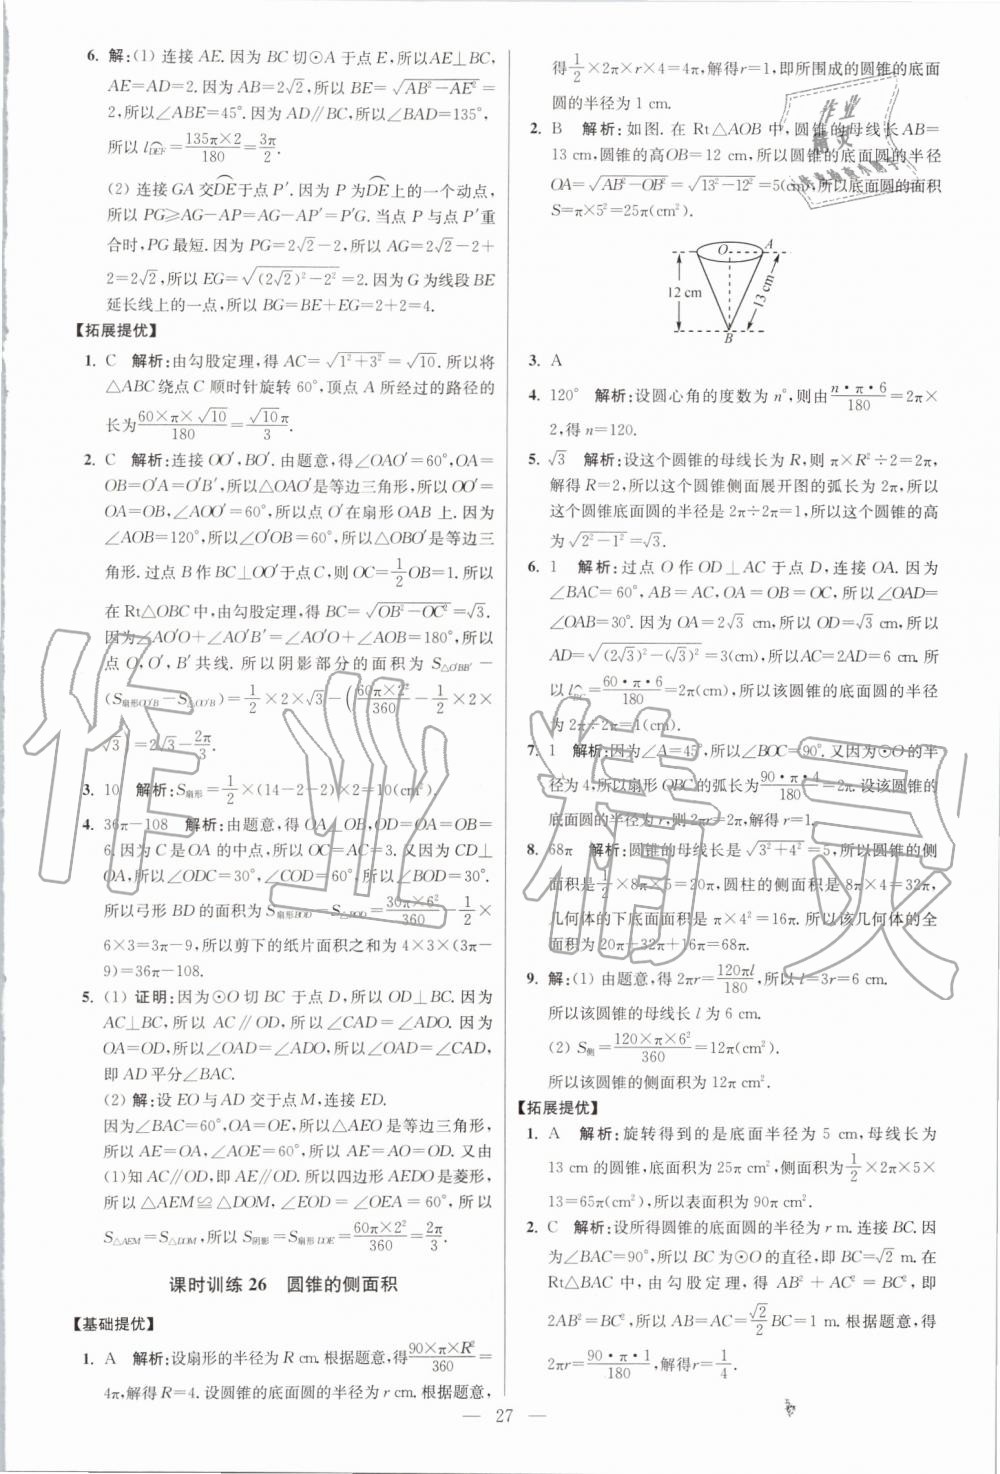 6. 解:(1) 连接 AE. 因为 BC 切⊙A 于点 E,所以AE⊥BC,
AE=AD=2. 因为 AB=2√2,所以 BE=√(AB²-AE²)=
2,所以∠ABE=45°. 因为 AD∥BC,所以∠BAD=135°,
所以 l⌒DEF=135π×2/180=3π/2.
(2) 连接 GA 交⌒DE于点 P′. 因为 P 为⌒DE上的一个动点,
所以 PG≥AG-AP=AG-AP′=P′G. 当点 P 与点 P′重
合时,PG 最短. 因为 PG=2√2-2,所以 AG=2√2-2+
2=2√2,所以 EG=√((2√2)²-2²)=2. 因为 G 为线段 BE
延长线上的一点,所以 BG=BE+EG=2+2=4.
【拓展提优】
1. C 解析:由勾股定理,得 AC=√(1²+3²)=√10. 所以将
△ABC 绕点 C 顺时针旋转 60°,顶点 A 所经过的路径的
长为60×π×√10/180=√10π/3.
2. C 解析:连接 OO′,BO′. 由题意,得∠OAO′=60°,OA=
OB=O′A=O′B′,所以△OAO′是等边三角形,所以 OO′=
OA=OB,∠AOO′=60°,所以点 O′在扇形 OAB 上. 因为
∠AOB=120°,所以∠O′OB=60°,所以△OBO′是等边三
角形. 过点 B 作 BC⊥OO′于点 C,则 OC=1/2OB=1. 所以
在 Rt△OBC 中,由勾股定理,得 BC=√(OB²-OC²)=√3.
因为∠AO′O+∠AO′B′=∠AO′O+∠AOB=180°,所以
点 O,O′,B′共线. 所以阴影部分的面积为 S△O′BB′-
(S扇形OO′B-S△OO′B)=1/2×2×√3-(60π×2²/360-1/2×2×
√3)=2√3-2π/3.
3. 10 解析:S扇形=1/2×(14-2-2)×2=10(cm²).
4. 36π-108 解析:由题意,得 OA⊥OB,OD=OA=OB=
6. 因为 C 是 OA 的中点,所以 OC=AC=3. 又因为 CD⊥
OA,所以∠ODC=30°,∠COD=60°,所以∠BOD=30°.
所以弓形 BD 的面积为 S扇形BOD-S△BOD=30π×6²/360-1/2×
6×3=3π-9,所以剪下的纸片面积之和为 4×3×(3π-
9)=36π-108.
5. (1) 证明:因为⊙O 切 BC 于点 D,所以 OD⊥BC. 因为
AC⊥BC,所以 AC∥OD,所以∠CAD=∠ADO. 因为
OA=OD,所以∠OAD=∠ADO,所以∠OAD=∠CAD,
即 AD 平分∠BAC.
(2) 解:设 EO 与 AD 交于点 M,连接 ED.
因为∠BAC=60°,OA=OE,所以△AEO 是等边三角形,
所以 AE=OA,∠AOE=60°,所以 AE=AO=OD. 又由
(1)知 AC∥OD,即 AE∥OD. 所以四边形 AEDO 是菱形,
所以△AEM≌△DOM,∠EOD=∠OEA=60°,所以
S△AEM=S△DOM,所以 S阴影=S扇形DOE=60π×2²/360=2π/3.
课时训练 26 圆锥的侧面积
【基础提优】
1. A 解析:设扇形的半径为 R cm. 根据题意,得90×π×R²/360=
4π,解得 R=4. 设圆锥的底面圆的半径为 r cm. 根据题意,
得1/2×2π×r×4=4π,解得r=1,即所围成的圆锥的底面
圆的半径为 1 cm.
2. B 解析:如图. 在 Rt△AOB 中,圆锥的母线长AB=
13 cm,圆锥的高OB=12 cm,所以圆锥的底面圆的半径
OA=√(AB²-OB²)=√(13²-12²)=5(cm),所以底面圆的面积
S=π×5²=25π(cm²).
O A
12 cm 13 cm
B
3. A
4. 120° 解析:设圆心角的度数为 n°,则由n·π·6/180=2π×
2,得 n=120.
5. √3 解析:设这个圆锥的母线长为 R,则 π×R²÷2=2π,
解得 R=2,所以这个圆锥侧面展开图的弧长为 2π,所以
这个圆锥底面圆的半径是 2π÷2π=1,所以这个圆锥的高
为√(2²-1²)=√3.
6. 1 解析:过点 O 作 OD⊥AC 于点 D,连接 OA. 因为
∠BAC=60°,AB=AC,OA=OB=OC,所以∠OAD=
∠OAB=30°. 因为 OA=2√3 cm,所以 OD=√3 cm,所以
AD=√((2√3)²-(√3)²)=3(cm),所以AC=2AD=6 cm. 所
以 l⌒BC=60·π·6/180=2π(cm),所以该圆锥的底面圆的半径
为 2π÷2π=1(cm).
7. 1 解析:因为∠A=45°,所以∠BOC=90°. 又因为⊙O的半
径为 4,所以扇形 OBC 的弧长为90·π·4/180=2π. 设该圆锥的
底面圆的半径为r,则 2πr=2π,解得 r=1.
8. 68π 解析:圆锥的母线长是√(3²+4²)=5,所以圆锥的侧
面积是1/2×8π×5=20π,圆柱的侧面积是 8π×4=32π,
几何体的下底面面积是 π×4²=16π. 所以该几何体的全
面积为 20π+32π+16π=68π.
9. 解:(1) 由题意,得 2πr=120πl/180,所以 l=3r=6 cm.
所以该圆锥的母线长 l 为 6 cm.
(2) S侧=120×π×6²/360=12π(cm²).
所以该圆锥的侧面积为 12π cm².
【拓展提优】
1. A 解析:旋转得到的是底面半径为 5 cm,母线长为
13 cm 的圆锥,底面积为 25π cm²,侧面积为1/2×2π×5×
13=65π(cm²),所以表面积为 90π cm².
2. C 解析:设所得圆锥的底面圆的半径为 r m. 连接 BC. 因
为∠BAC=90°,所以 BC 为⊙O 的直径,即 BC=√2 m. 在
Rt△BAC 中,由勾股定理,得 AB²+AC²=BC²,即
2AB²=BC²,所以 AB=AC=√2/2BC=1 m. 根据题意,得
2πr=90·π·1/180,解得r=1/4.
— 27 —
作业精灵
作业
精灵